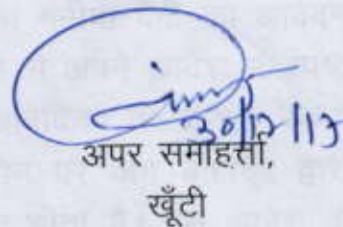 30/12/13
अपर समाहर्त्ता,
खूँटी